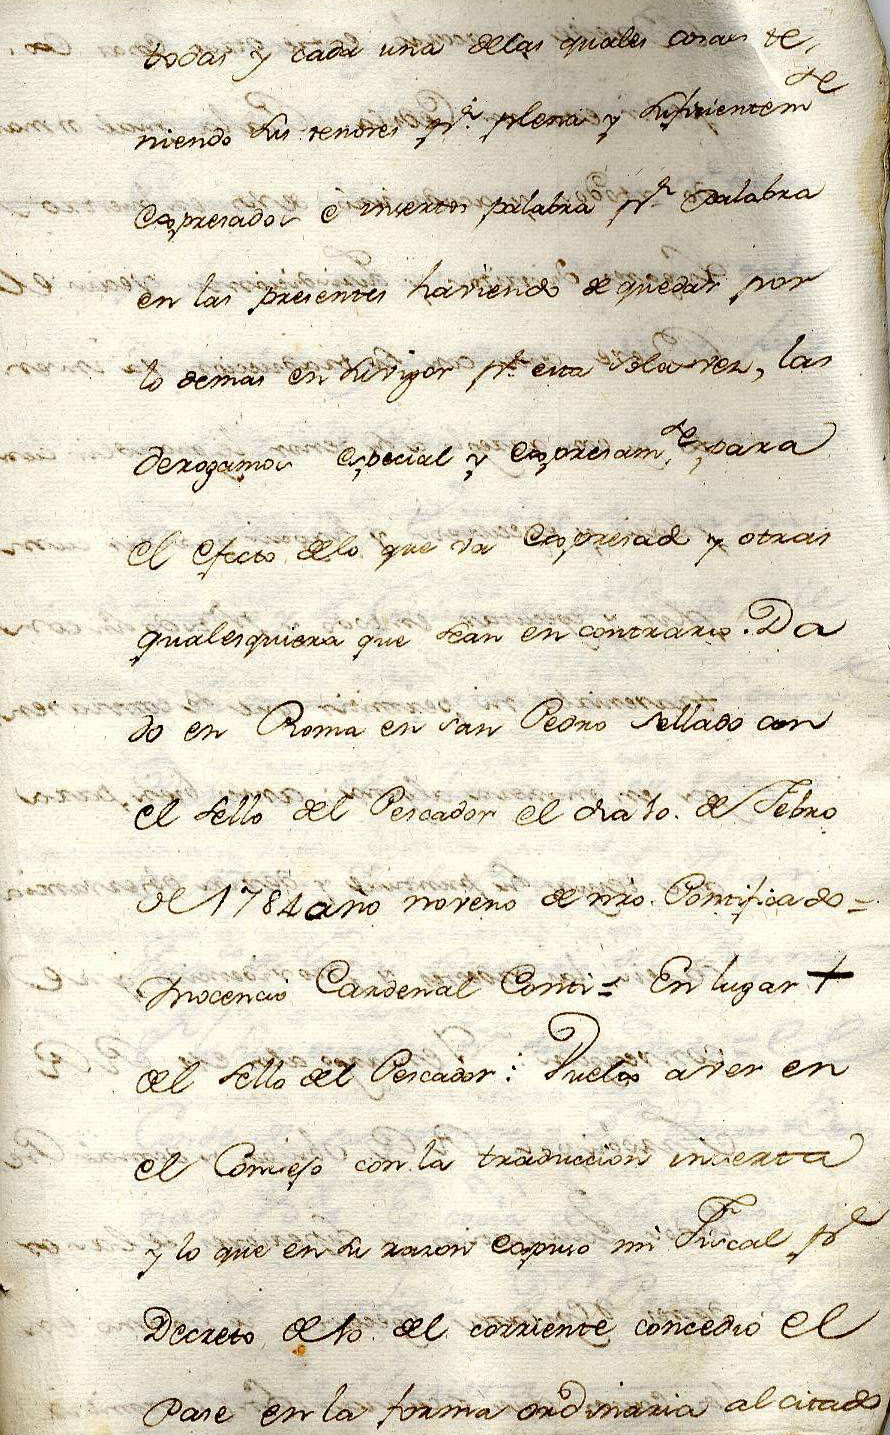 todas y cada una delas quales cosas te,
niendo sus tenores pr. plena y suficientemte
expresados é insertos palabra pr. palabra
en las presentes haviendo de quedar por
lo demas en su vigor pr. esta sola vez, las
derogamos especial y expresamte, para
el efecto delo que va expresado y otras
qualesquiera que sean en contrario. Da
do en Roma en san Pedro sellado con
el sello del Pescador el dia 10. de Febro
de 1784 año noveno de nro. Pontificado =
Inocencio Cardenal Conti = En lugar +
del sello del Pescador: Vuelto a ver en
el Consejo con la traduccion inserta
y lo que en su razon expuso mi Fiscal pr
Decreto de 10. del corriente concedió el
Pase en la forma ordinaria al citado